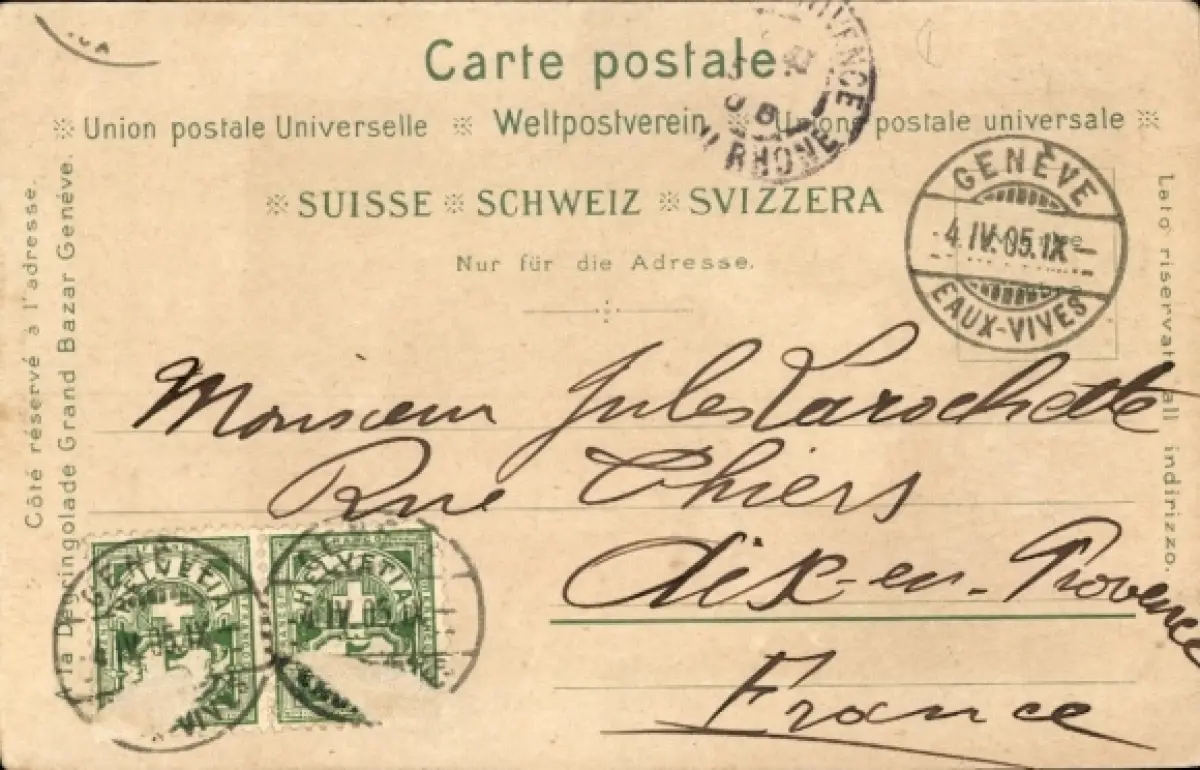 Carte postale.
Union postale Universelle Weltpostverein Unione postale universale
SUISSE SCHWEIZ SVIZZERA
Nur für die Adresse.
Côté réservé à l'adresse.
A la Dégringolade Grand Bazar Genève.
Lato riservato all indirizzo.
PROVENCE
RHONE
GENÈVE
4.IV.05.IX
EAUX-VIVES
Monsieur Jules Larochette
Rue Thiers
Aix-en-Provence
France
HELVETIA
HELVETIA
GENÈVE
IV.05